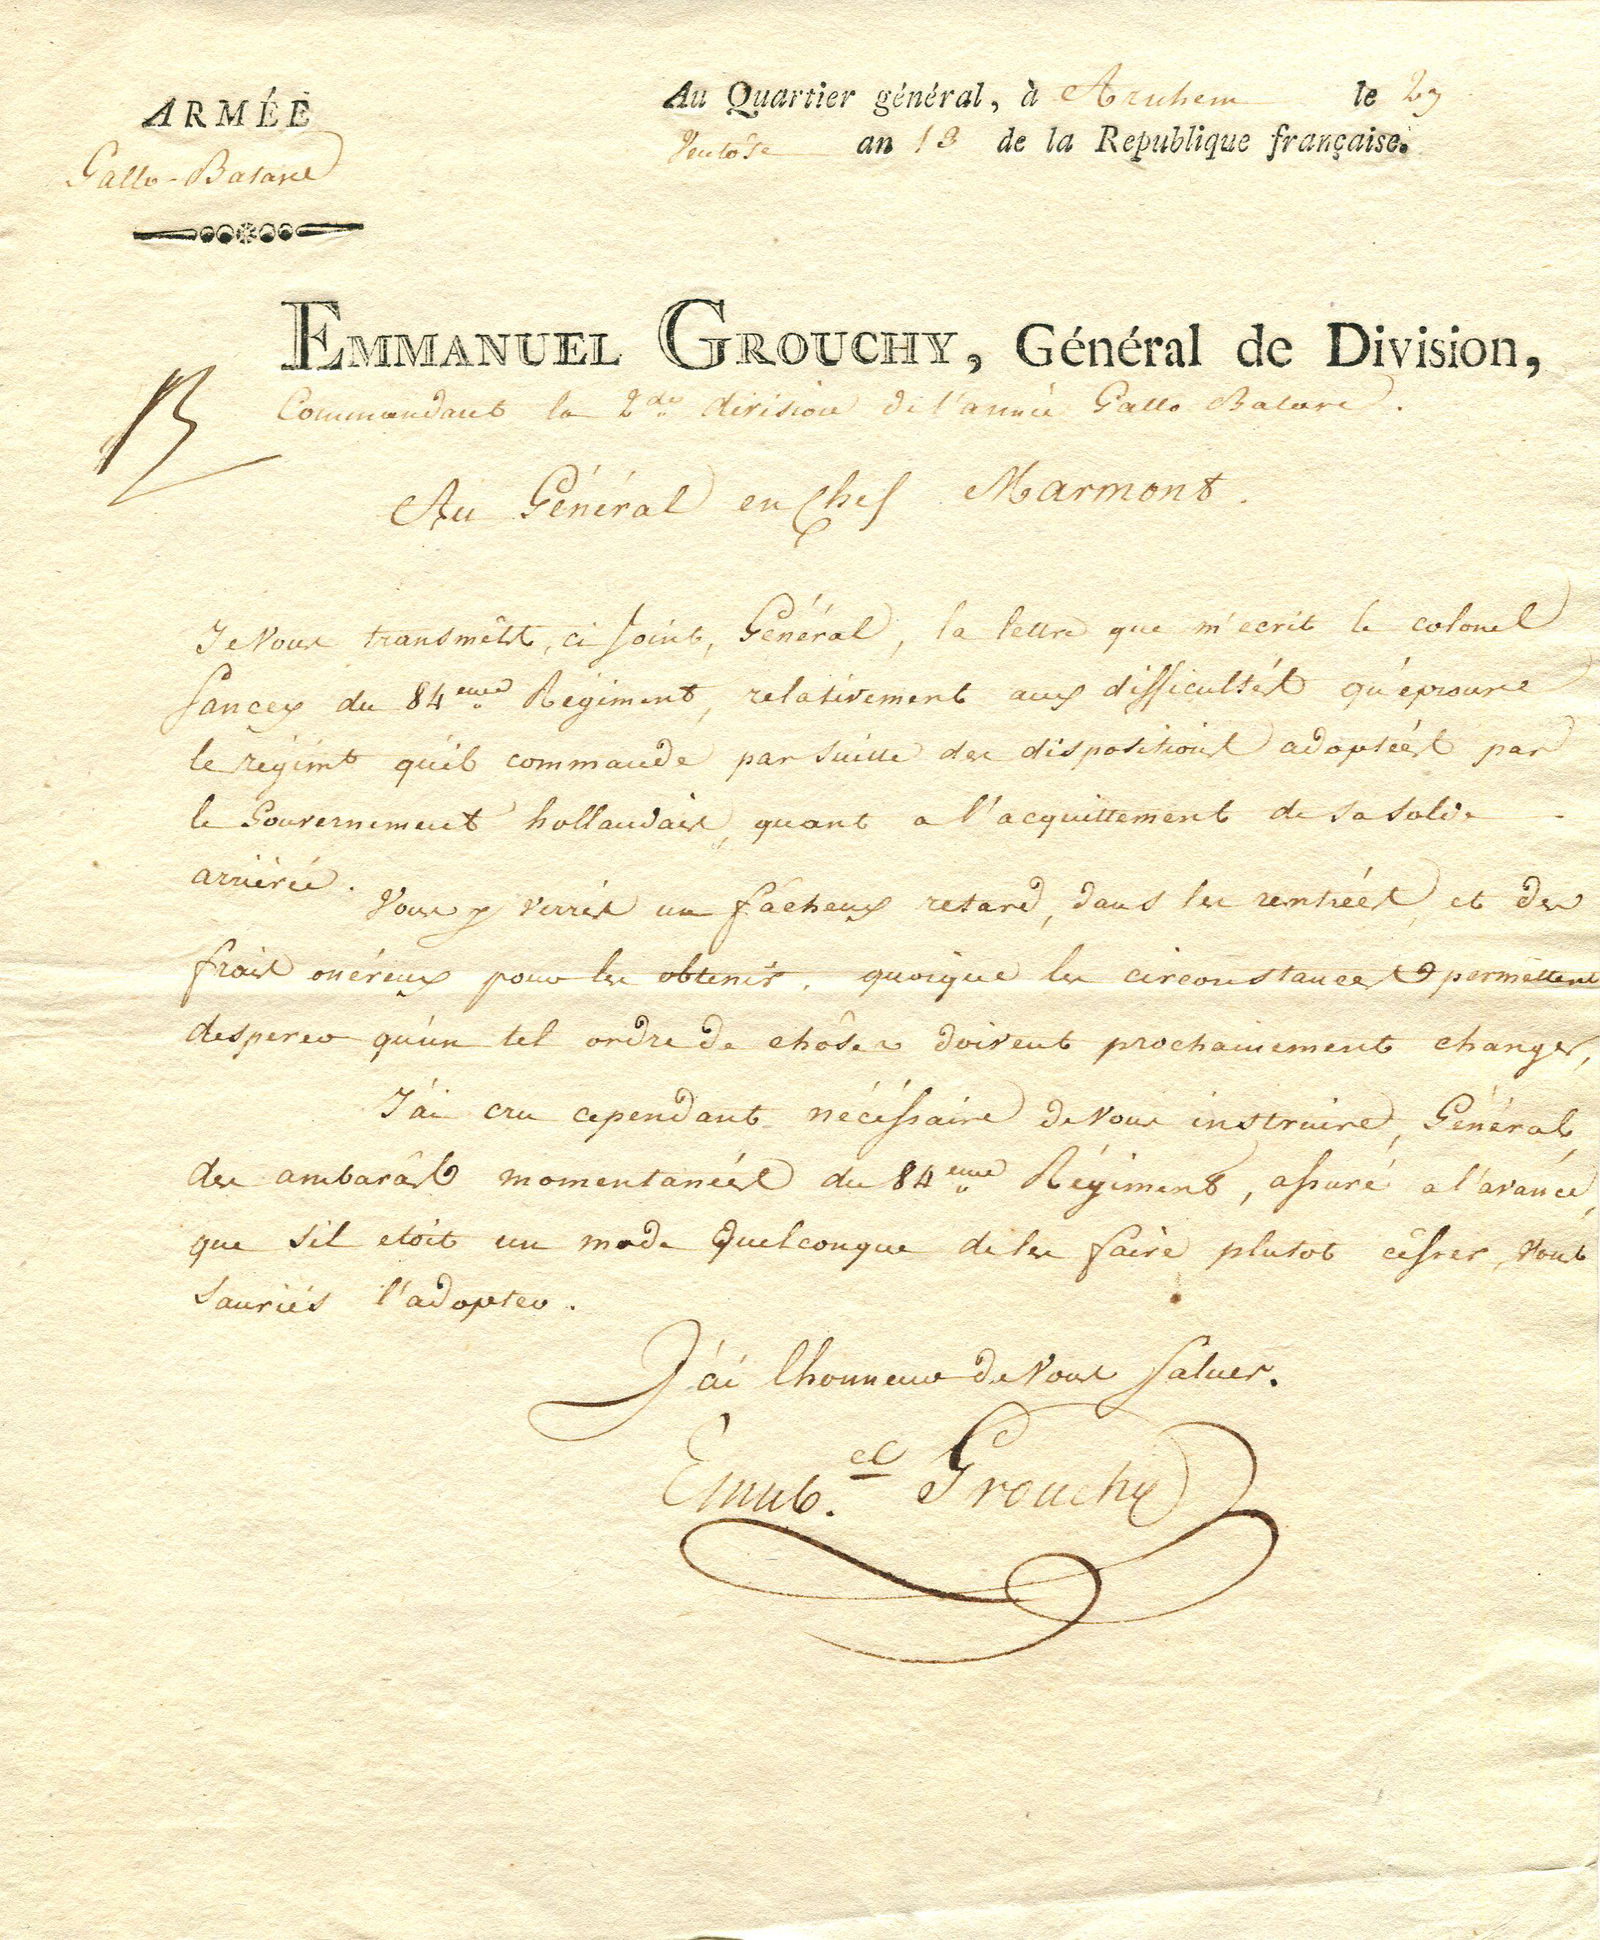 ARMÉE
Gallo-Batave
Au Quartier général, à Arnhem le 27
Ventôse an 13 de la Republique française.
EMMANUEL GROUCHY, Général de Division,
Commandant la 2de division de l'armée Gallo Batave.
Au Général en Chef Marmont.
Je vous transmêts, ci joint, Général, la lettre que m'ecrit le colonel
du 84eme Régiment, relativement aux difficultés qu'éprouve
le régimt qu'il commande par suitte des dispositions adoptées par
le Gouvernement hollandais, quant a l'acquittement de sa solde
arriérée.
Vous y verrés un fâcheux retard, dans les rentrées, et des
frais onéreux pour les obtenir, quoique les circonstances permettent
desperer qu'un tel ordre de chôses doivent prochainement changer,
J'ai cru cependant nécéssaire de vous instruire, Général,
des ambarâs momentanées du 84eme Régiment, assuré a l'avance,
que s'il etoit un mode quelconque de les faire plutot césser, vous
sauriés l'adopter.
J'ai lhonneur de vous saluer.
Emmel. Grouchy